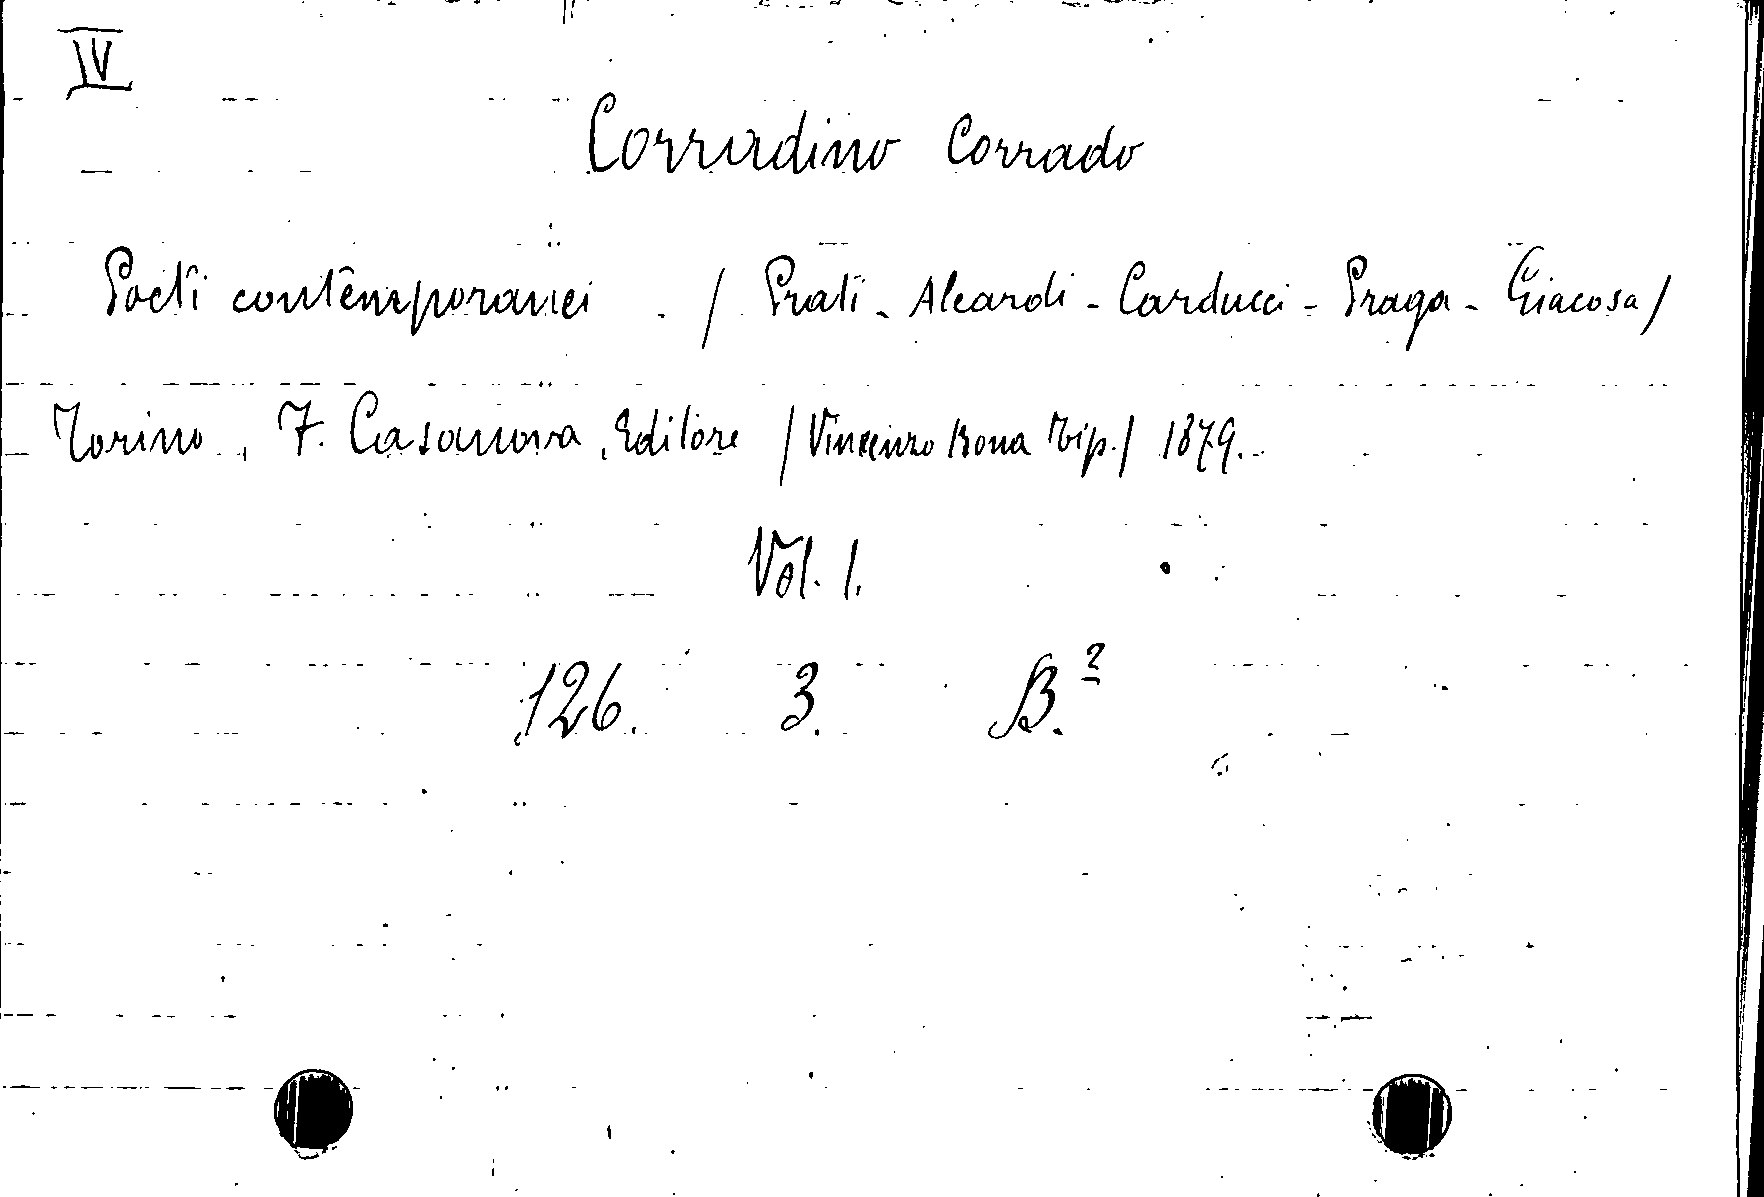 IV
Corradino Corrado
Poeti contemporanei . / Prati - Aleardi - Carducci - Praga - Giacosa /
Torino, F. Casanova, Editore / Vincenzo Bona Tip. / 1879.
Vol. 1.
126. 3. B.²